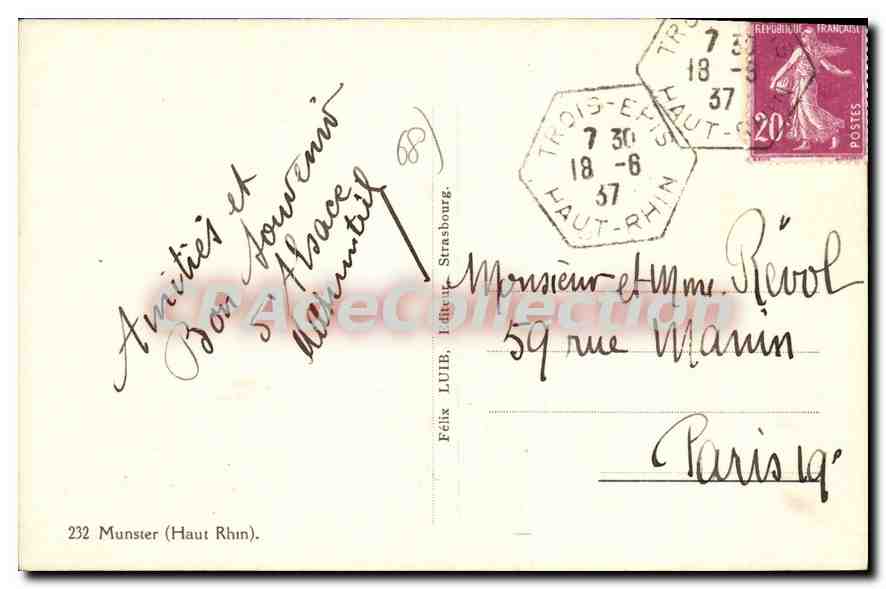 Amitiés et
Bon souvenir
d'Alsace
68
Félix LUIB, Editeur, Strasbourg.
TROIS-EPIS
7 30
18 -6
37
HAUT-RHIN
TROIS
7 30
18 -6
37
HAUT-RHIN
REPUBLIQUE FRANÇAISE
20c
POSTES
Monsieur et Mme. Révol
59 rue Manin
Paris 19e
232 Munster (Haut Rhin).
CPAdeCollection